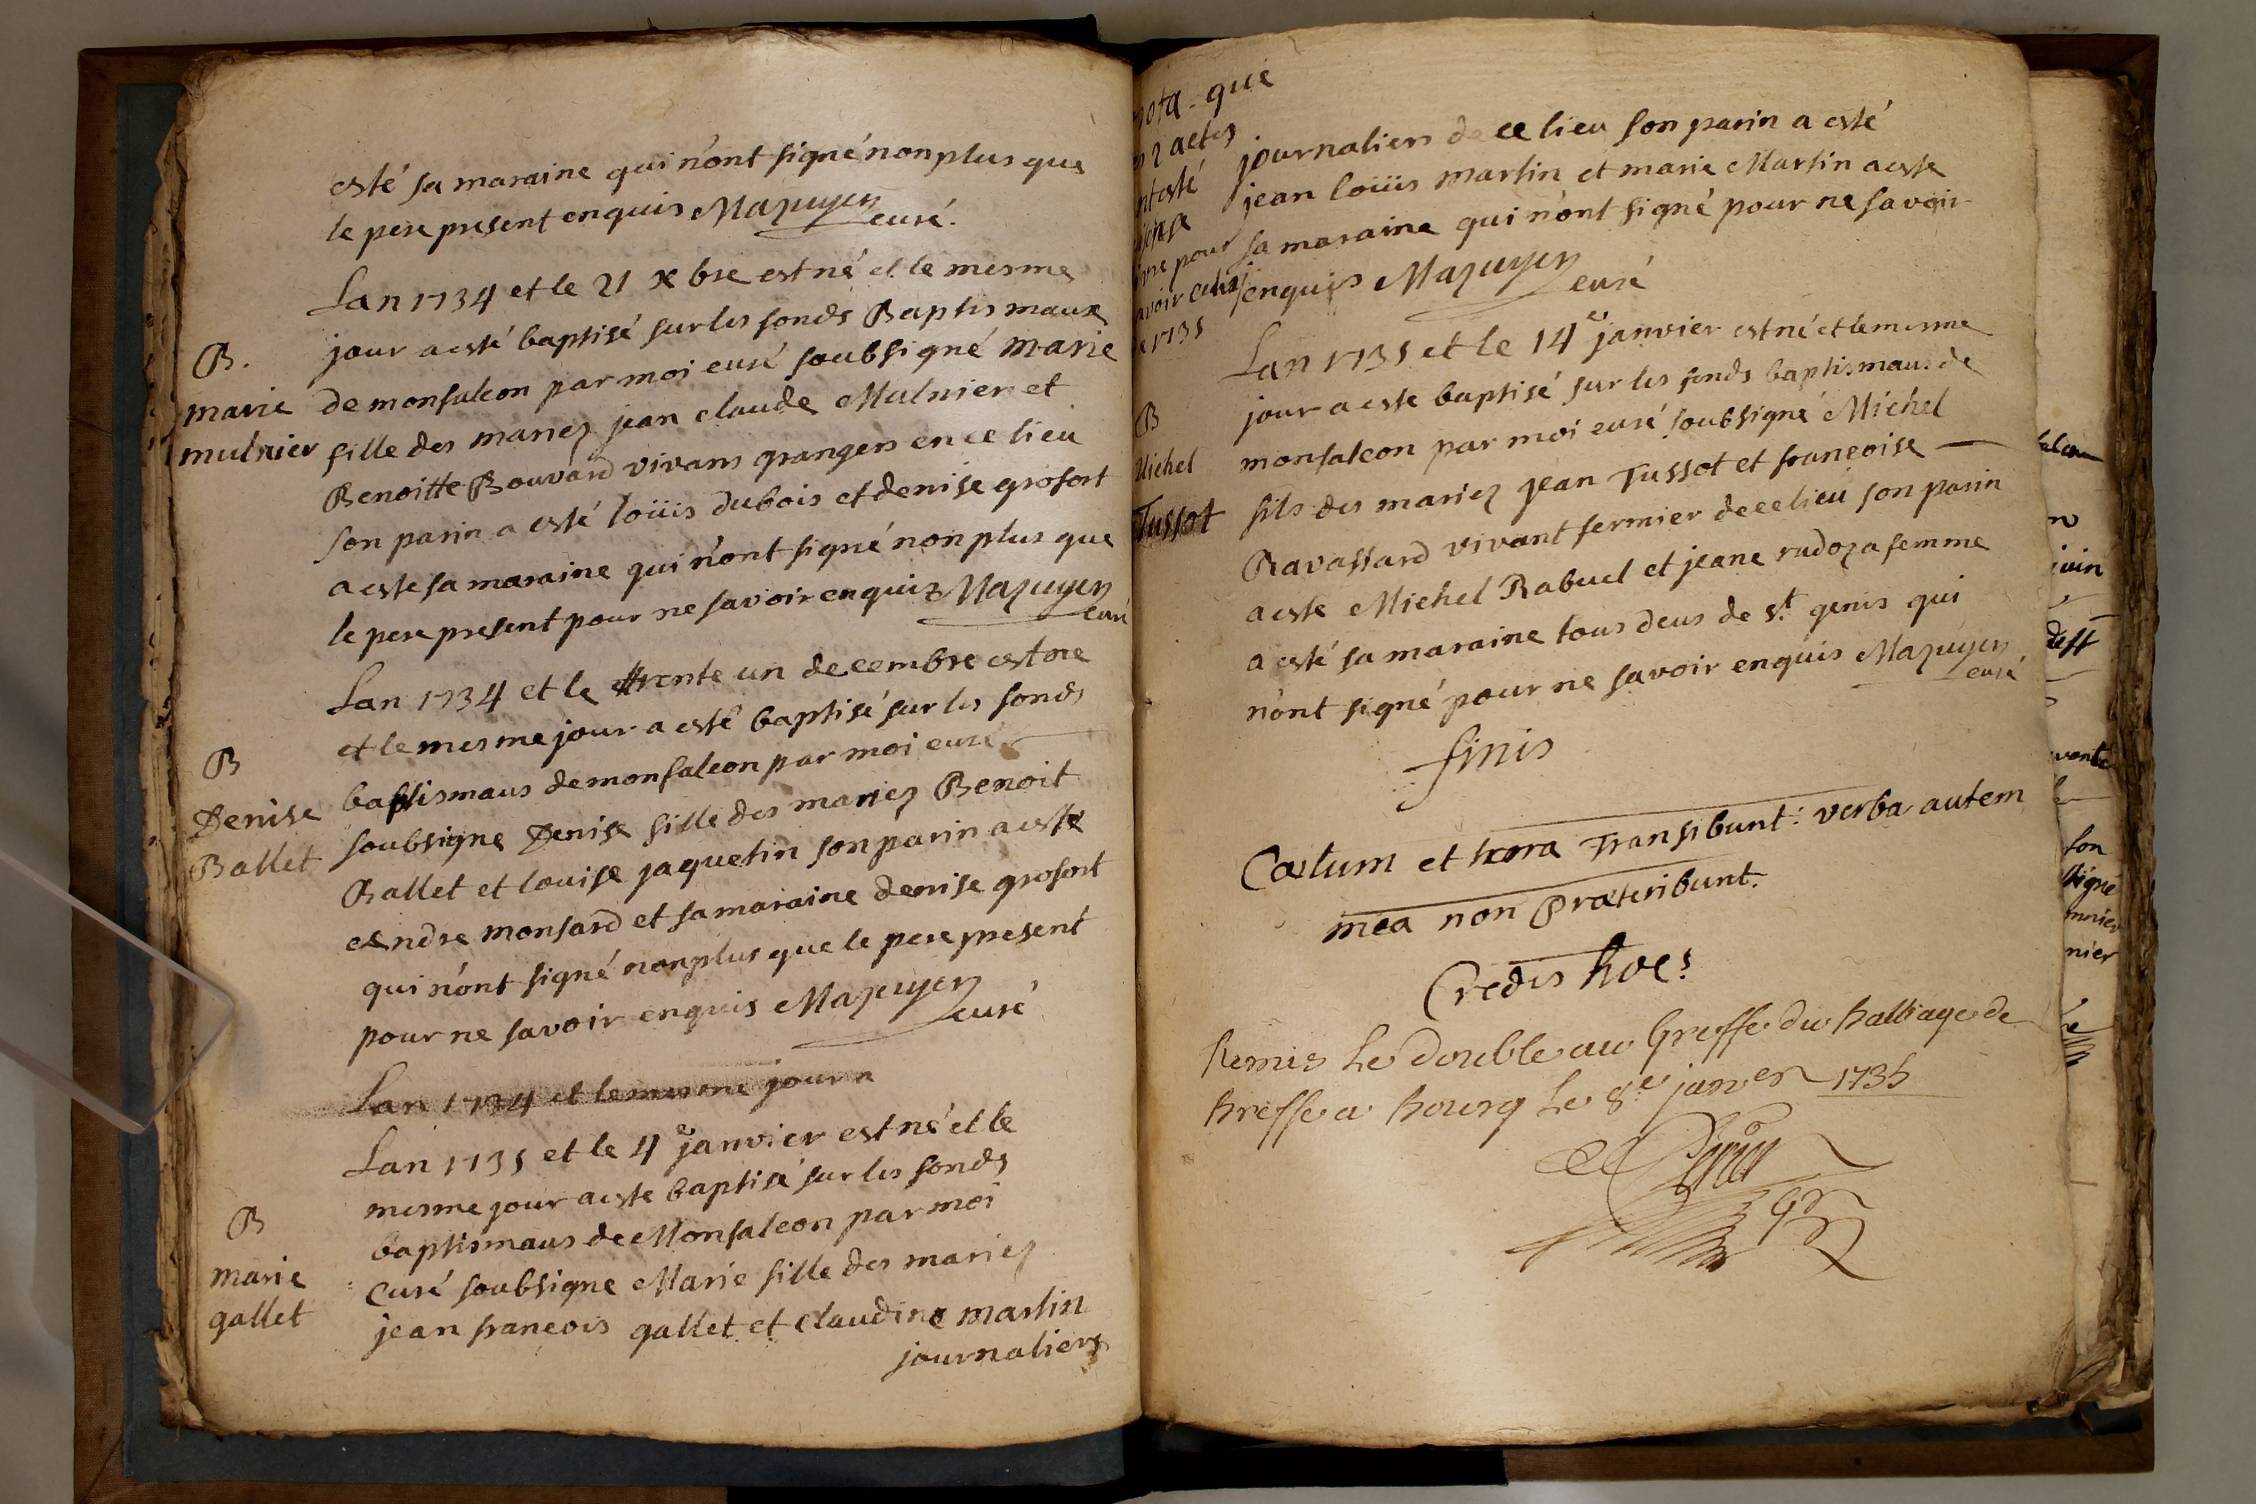 esté sa maraine qui n'ont signé nonplus que
le pere present enquis Mazuyer
curé.
Lan 1734 et le 21 xbre est né et le mesme
jour a esté baptisé sur les fonds Baptismaux
B.
de monfalcon par moi curé soubsigné marie
marie
mulnier
fille des mariez jean claude Mulnier et
Benoitte Bouvard vivans grangers en ce lieu
son parin a esté loüis dubois et denise grosfort
a este sa maraine qui n'ont signé non plus que
le pere present pour ne savoir enquis Mazuyer
curé
Lan 1734 et le trente un decembre est née
et le mesme jour a esté baptisé sur les fonds
B
baptismaus de monfalcon par moi curé
Denise
soubsigne Denise fille des mariez Benoit
Ballet
Ballet et louise jaquetin son parin a este
andre monfard et sa maraine denise grosfort
qui n'ont signé nonplus que le pere present
pour ne savoir enquis Mazuyer
curé
Lan 1734 et le mesme jour a
Lan 1735 et le 4e janvier est né et le
mesme jour a este baptisé sur les fonds
B
baptismaus de Monfalcon par moi
marie
curé soubsigne Marie fille des mariez
gallet
jean francois gallet et claudine martin
journaliers
nota que
2 actes
esté
pour
1735
journaliers de ce lieu son parin a esté
jean loüis martin et marie Martin a este
sa maraine qui n'ont signé pour ne savoir
enquis Mazuyer
curé
Lan 1735 et le 14e janvier est né et le mesme
jour a este baptisé sur les fonds baptismaus de
B
monfalcon par moi curé soubsigné Michel
Michel
fils des mariez jean Tussot et francoise
Tussot
Ravassard vivant fermier de ce lieu son parin
a este Michel Rabuel et jeane rudoz sa femme
a esté sa maraine tous deus de st. genis qui
n'ont signé pour ne savoir enquis Mazuyer
curé
finis
Cœlum et terra Transibunt: verba autem
mea non Præteribunt.
Credis hoc?
Remis le double au Greffe du balliage de
bresse a bourg le 8e janver 1735